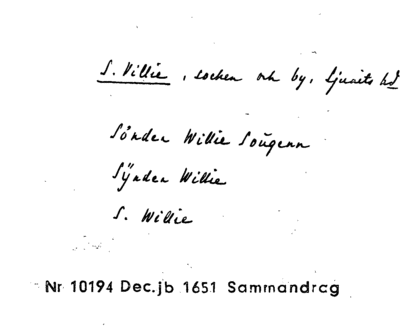 S. Villie, socken och by, Ljunits hd
Sånden Willie Soŭgenn
Sÿnden Willie
S. Willie
Nr 10194 Dec.jb 1651 Sammandrag